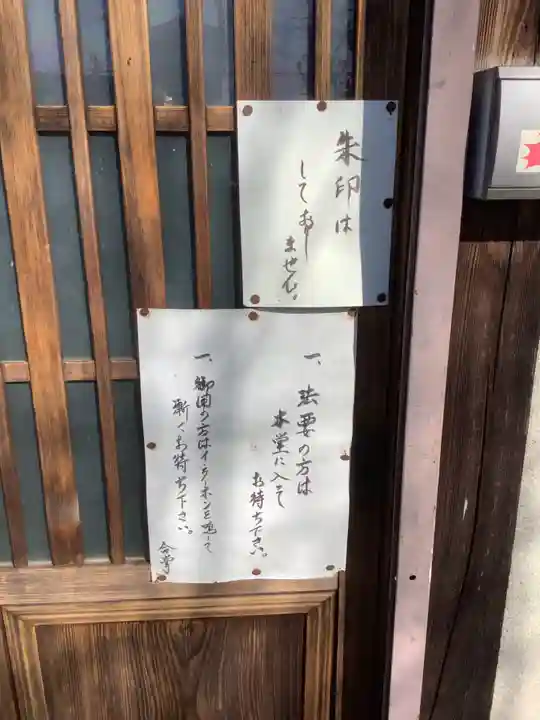 朱印は
しておりません。
一、法要の方は
本堂に入って
お待ち下さい。
一、御用の方はインターホンを鳴して
暫くお待ち下さい。
合掌